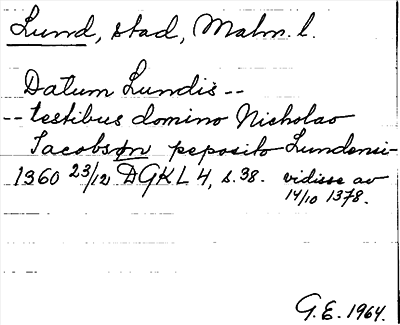 Lund, stad, Malm. l.
Datum Lundis --
-- testibus domino Nicholao
Jacobson peposito Lundensi-
1360 23/12 DGKL 4, s. 38. vidisse av
14/10 1378.
G.E. 1964.